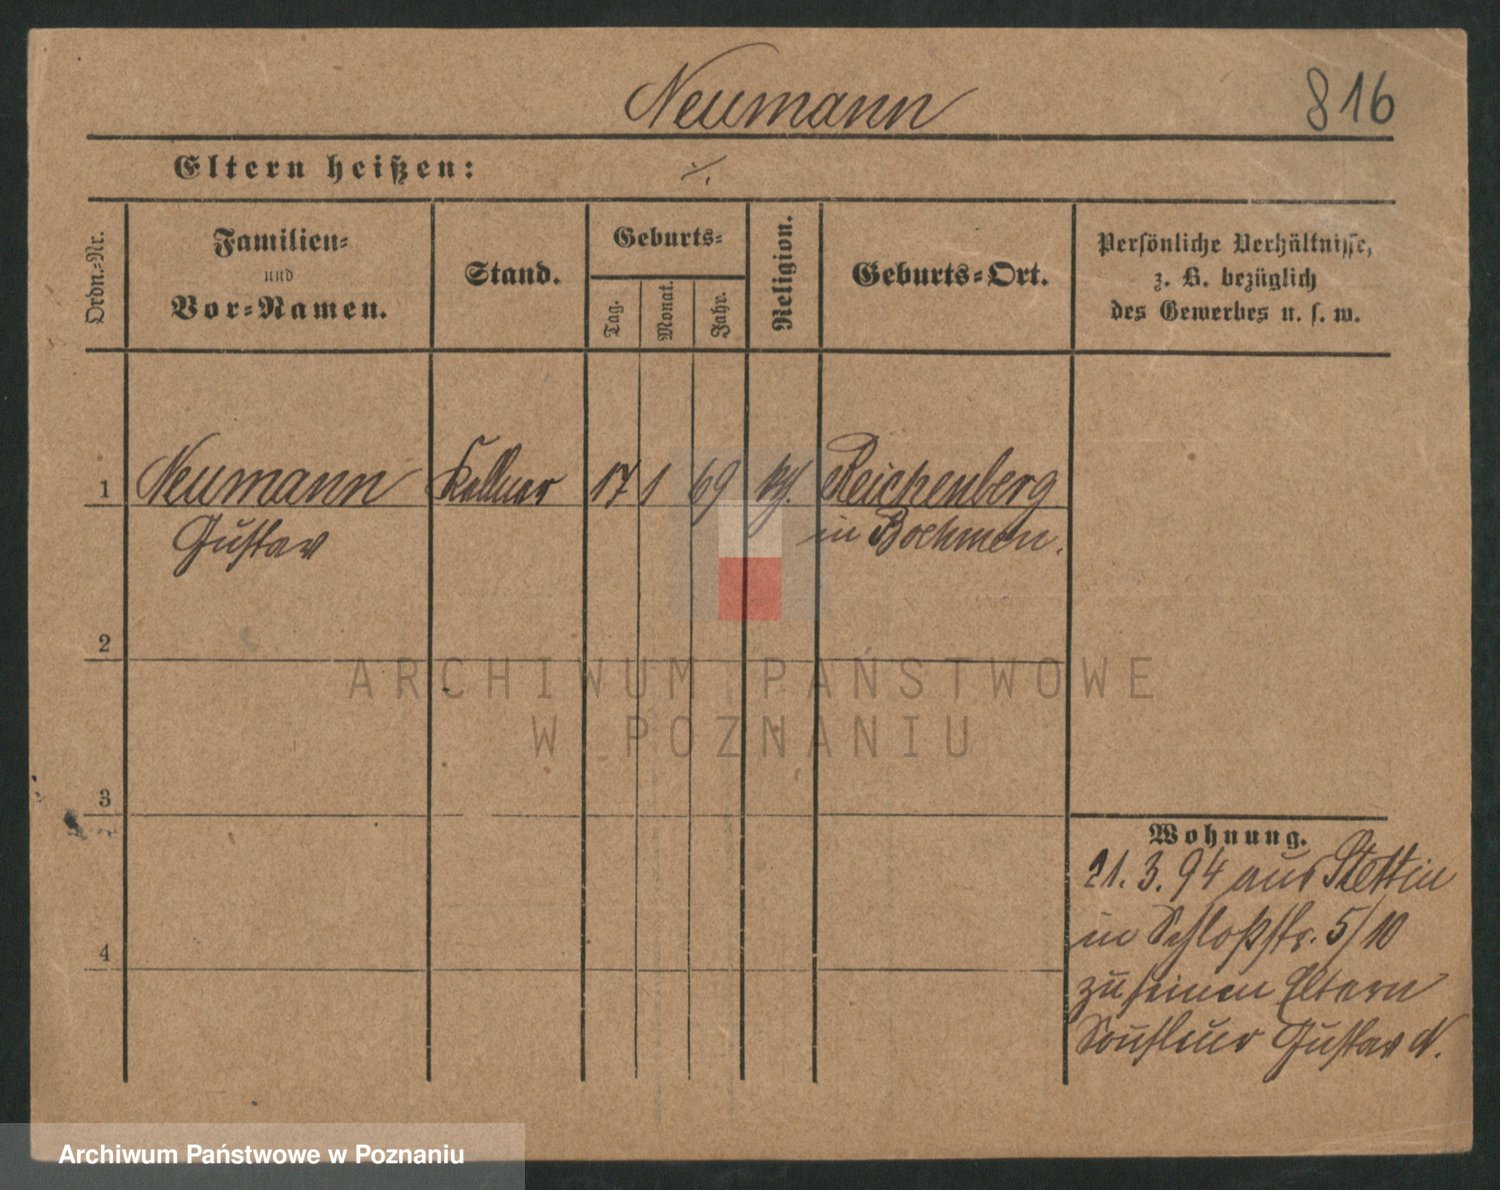 Neumann
816
Eltern heißen: ./.
Ordn.-Nr.
Familien-
und
Vor-Namen.
Stand.
Geburts-
Tag.
Monat.
Jahr.
Religion.
Geburts-Ort.
Persönliche Verhältnisse,
z. B. bezüglich
des Gewerbes u. s. w.
1 Neumann Kellner 17 1 69 kth. Reichenberg
Gustav in Boehmen.
2
3
4
Wohnung.
21. 3. 94 aus Stettin
in Schloßstr. 5/10
zu seinen Eltern
Soufleur Gustav N.
ARCHIWUM PAŃSTWOWE
W POZNANIU
Archiwum Państwowe w Poznaniu